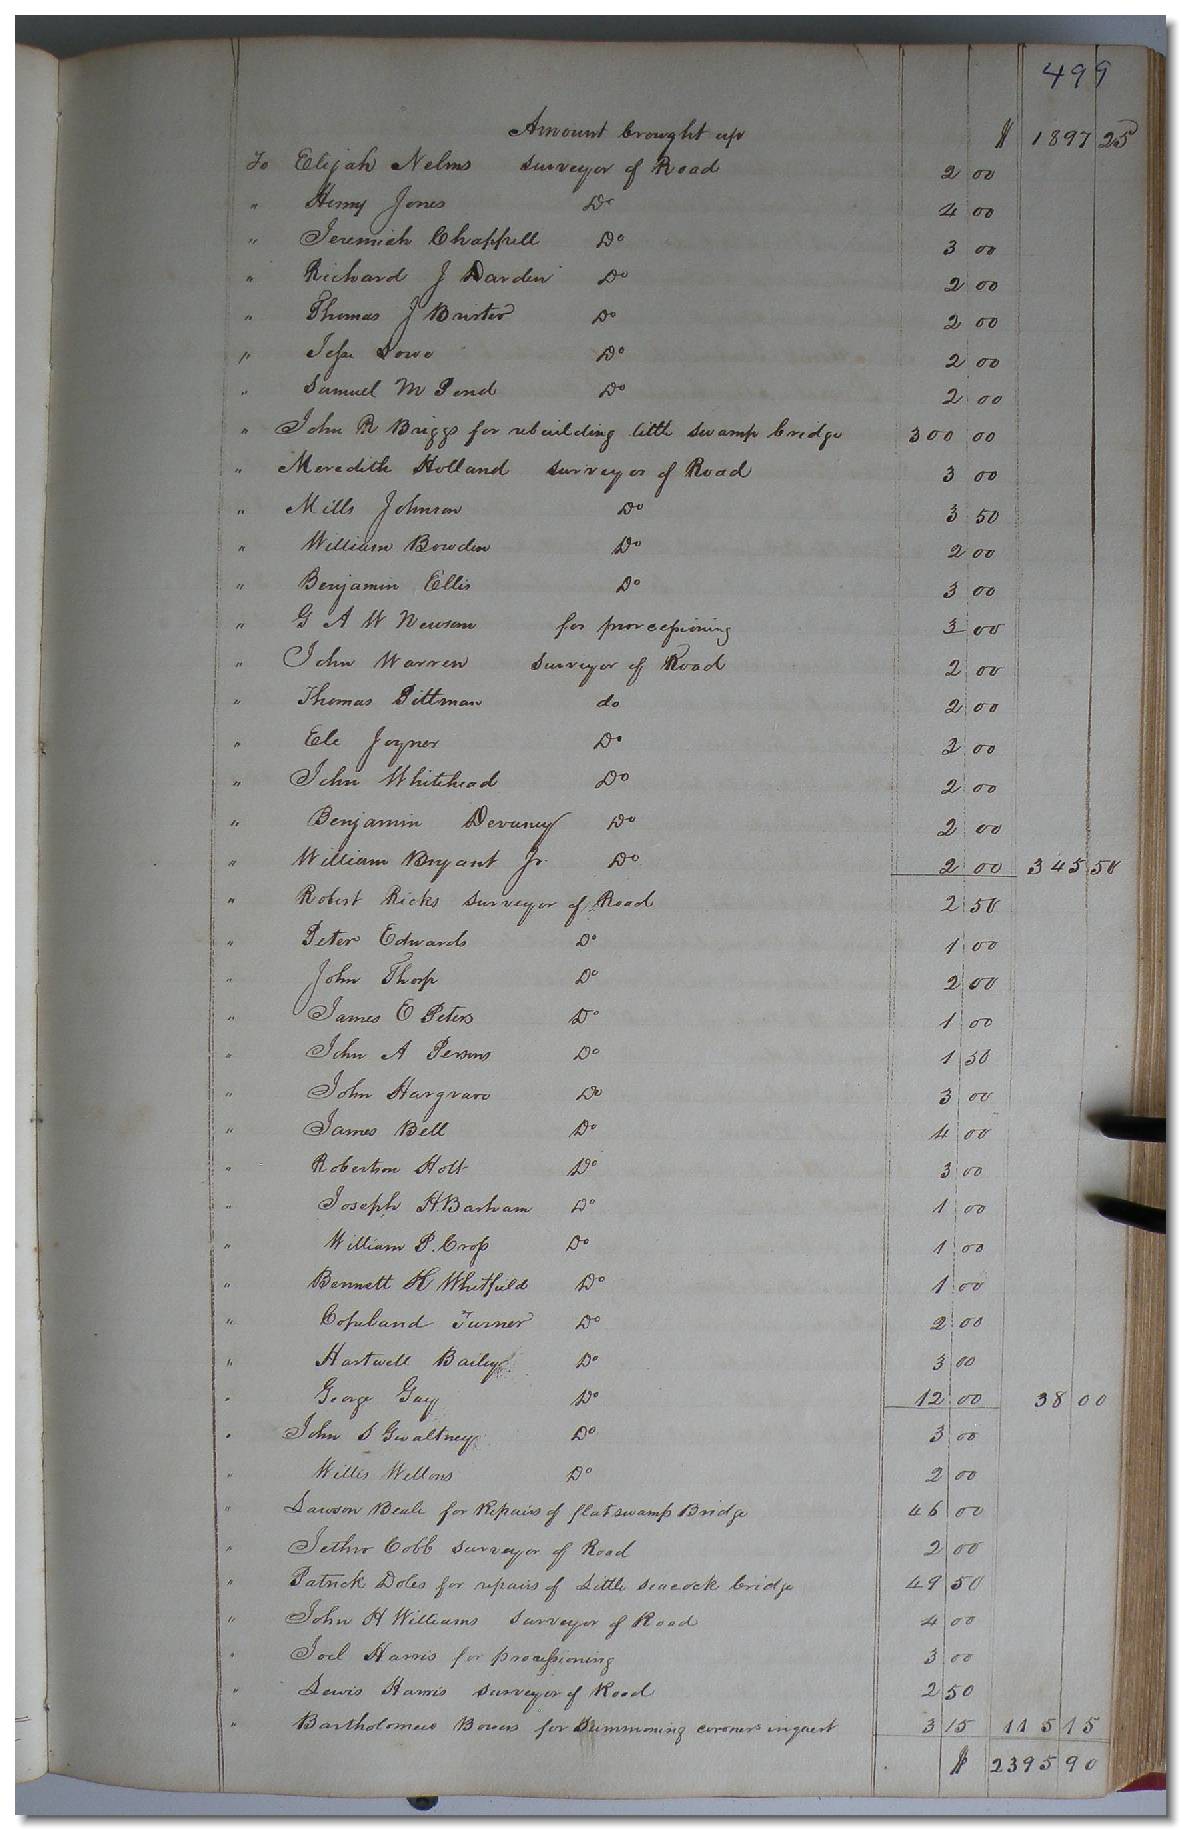 499
Amount brought up $ 1897 25
To Elijah Nelms surveyor of Road 2 00
" Henry Jones Do 4 00
" Jeremiah Chappell Do 3 00
" Richard J Darden Do 2 00
" Thomas J Bristor Do 2 00
" Jesse Lowe Do 2 00
" Samuel M Pond Do 2 00
" John R Briggs for rebuilding little swamp bridge 300 00
" Meredith Holland surveyor of Road 3 00
" Mills Johnson Do 3 50
" William Bowden Do 2 00
" Benjamin Ellis Do 3 00
" G A W Newsom for processioning 3 00
" John Warren surveyor of Road 2 00
" Thomas Pittman do 2 00
" Ele Joyner Do 2 00
" John Whitehead Do 2 00
" Benjamin Devaney Do 2 00
" William Bryant Jr Do 2 00 345 50
" Robert Ricks surveyor of Road 2 50
" Peter Edwards Do 1 00
" John Thorp Do 2 00
" James E Peters Do 1 00
" John A Persons Do 1 50
" John Hargrave Do 3 00
" James Bell Do 4 00
" Robertson Holt Do 3 00
" Joseph H Barham Do 1 00
" William P. Cross Do 1 00
" Bennett H Whitfield Do 1 00
" Copeland Turner Do 2 00
" Hartwell Bailey Do 3 00
" George Gay Do 12 00 38 00
" John S Gwaltney Do 3 00
" Willis Wellons Do 2 00
" Lawson Beale for Repairs of flat swamp Bridge 46 00
" Jethro Cobb surveyor of Road 2 00
" Patrick Doles for repairs of Little seacock bridge 49 50
" John H Williams surveyor of Road 4 00
" Joel Harris for processioning 3 00
" Lewis Harris surveyor of Road 2 50
" Bartholomew Bowers for Summoning coroners inquest 3 15 115 15
$ 2395 90